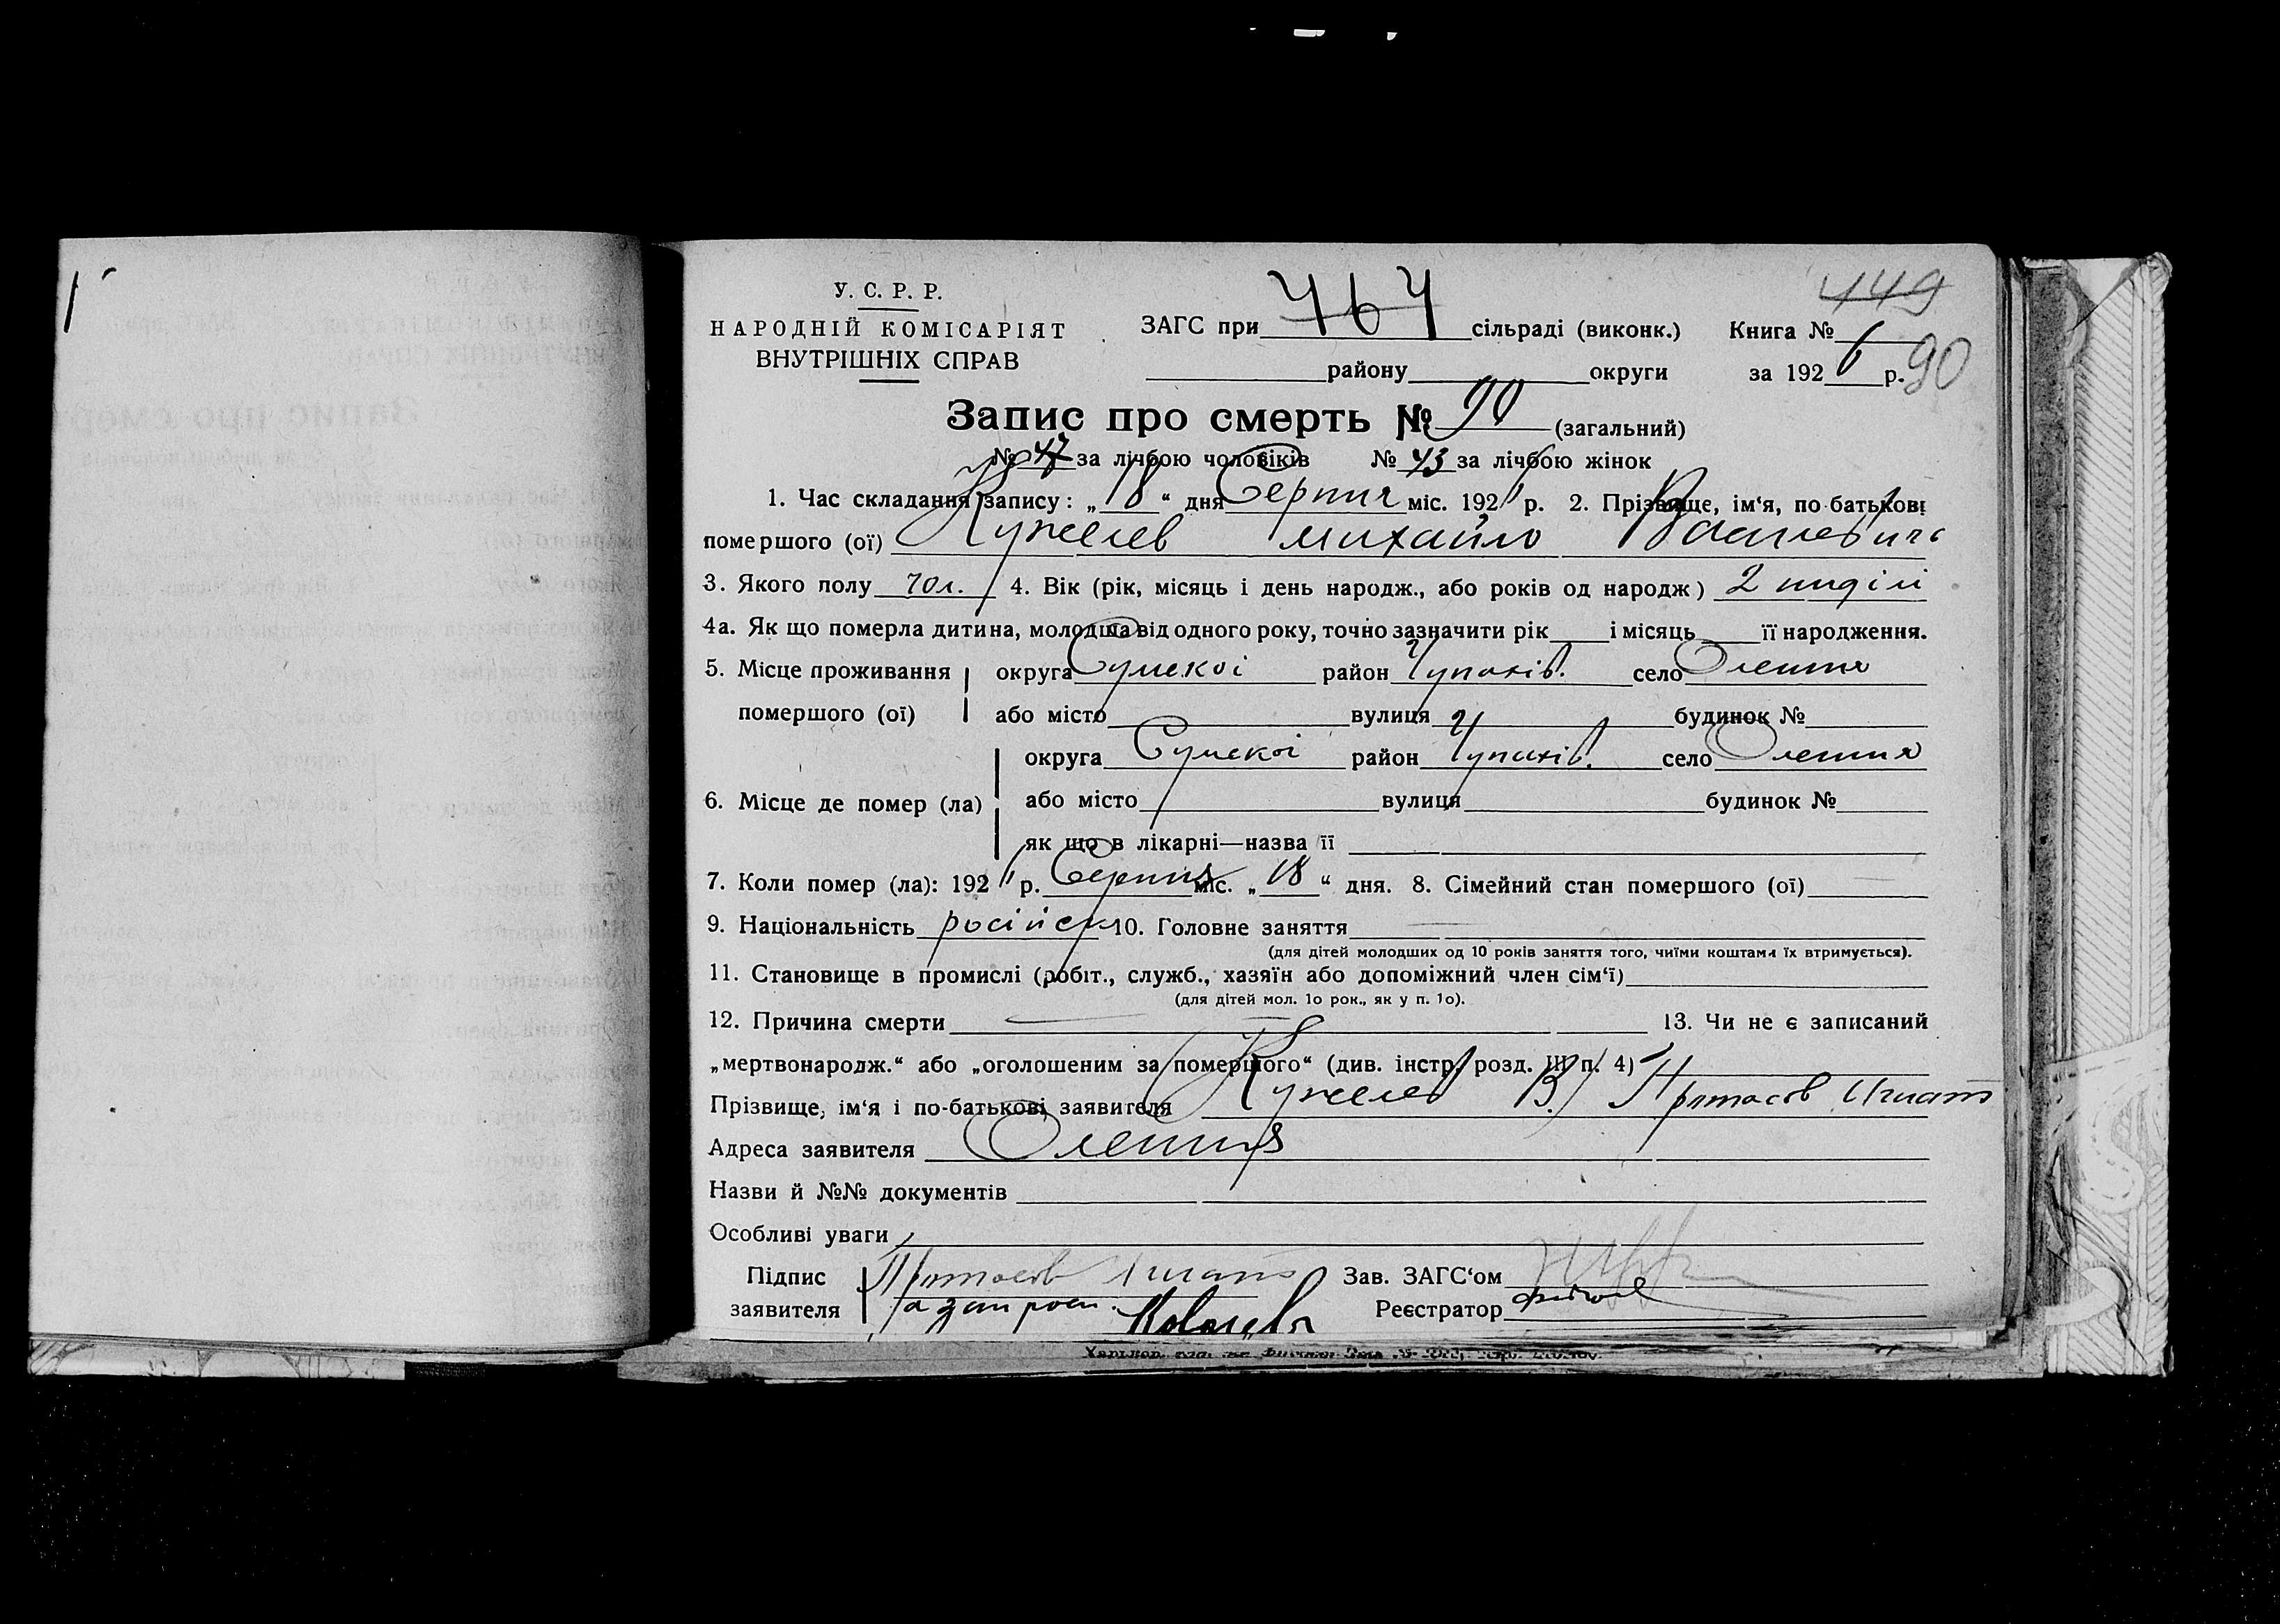 449
У. С. Р. Р.
НАРОДНІЙ КОМІСАРІЯТ
ВНУТРІШНІХ СПРАВ
ЗАГС при 464 сільраді (виконк.) Книга №
району округи за 1926 р. 90
Запис про смерть № 90 (загальний)
№ 47 за лічбою чоловіків № 43 за лічбою жінок
1. Час складання запису: „18“ дня Серпня міс. 1926 р. 2. Прізвище, ім‘я, по-батькові
помершого (ої) Кужелев Михайло
3. Якого полу чол. 4. Вік (рік, місяць і день народж., або років од народж) 2 неділі
4а. Як що померла дитина, молодша від одного року, точно зазначити рік і місяць її народження.
5. Місце проживання помершого (ої) округа Сумскоі район Чупахів. село Олешня
або місто вулиця будинок №
6. Місце де помер (ла) округа Сумскоі район Чупахів. село Олешня
або місто вулиця будинок №
як що в лікарні—назва її
7. Коли помер (ла): 1926 р. Серпня міс. „18“ дня. 8. Сімейний стан помершого (ої)
9. Національність російск 10. Головне заняття
(для дітей молодших од 10 років заняття того, чиїми коштами їх втримується).
11. Становище в промислі (робіт., служб., хазяїн або допоміжний член сім‘ї)
(для дітей мол. 10 рок., як у п. 10).
12. Причина смерти 13. Чи не є записаний
„мертвонародж.“ або „оголошеним за помершого“ (див. інстр. розд. III п. 4)
Прізвище, ім‘я і по-батькові заявителя Кужелев В. Протасов Игнат
Адреса заявителя Олешня
Назви й №№ документів
Особливі уваги
Підпис заявителя Протасов Игнат Зав. ЗАГС‘ом
Реєстратор